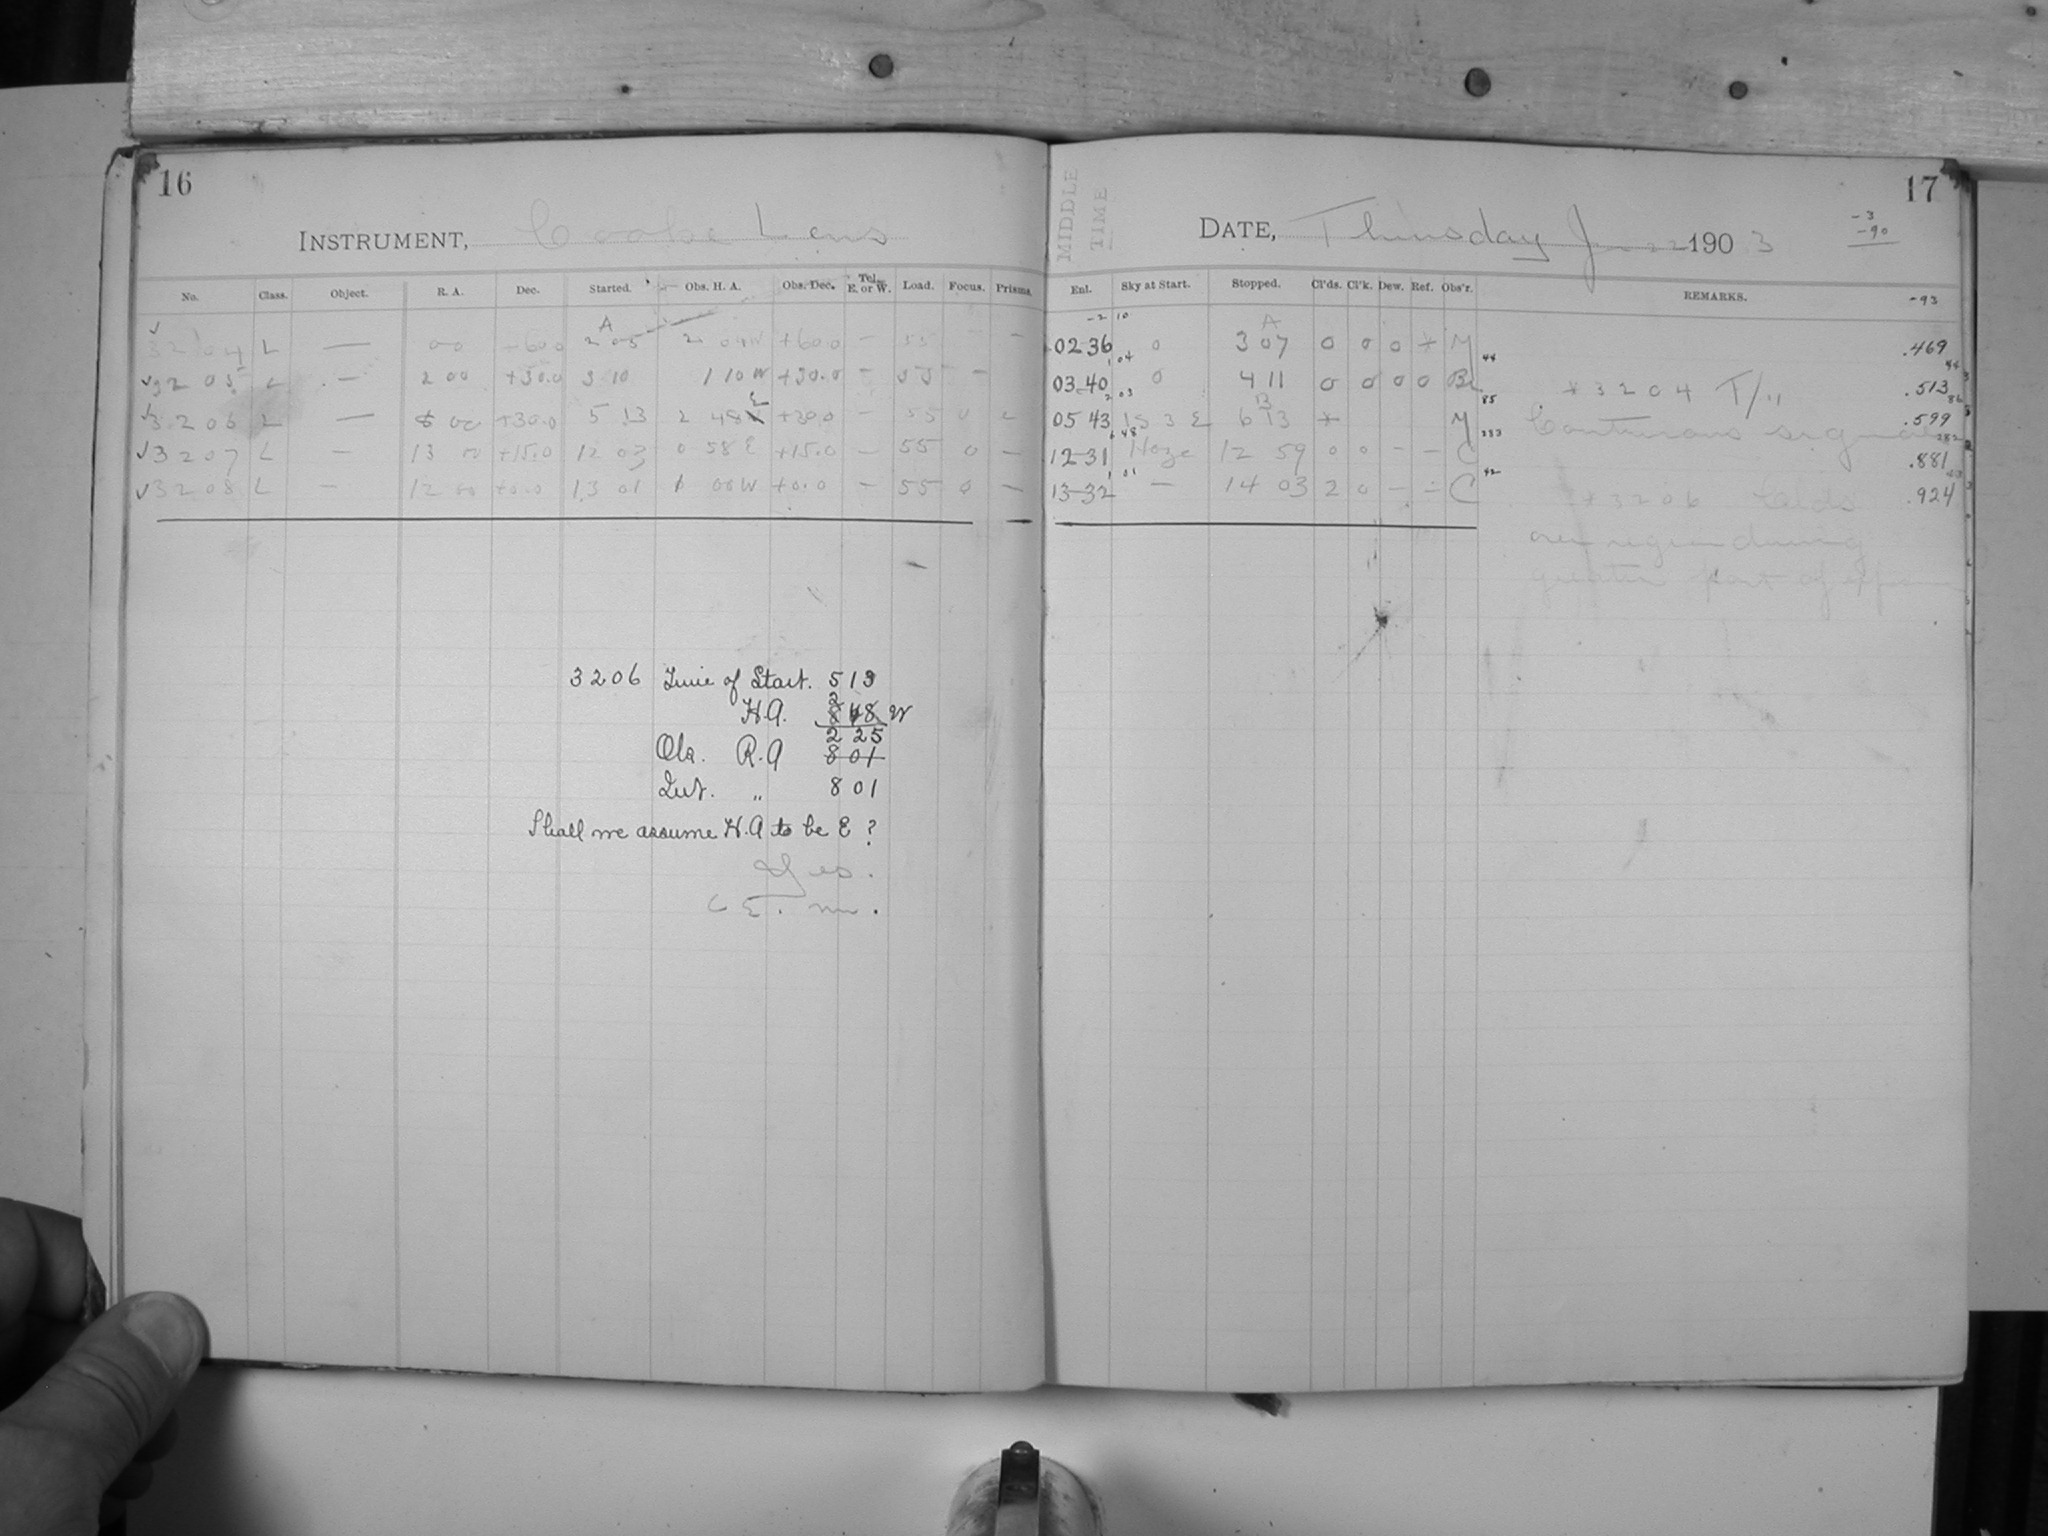 16
INSTRUMENT, Cooke Lens
No. Class. Object. R. A. Dec. Started. Obs. H. A. Obs. Dec. Tel. E. or W. Load. Focus. Prisms.
A
3204 L — 00 +60.0 2 05 2 04 W +60.0 — 55 —
✓3205 L — 2 00 +30.0 3 10 1 10 W +30.0 — 55 —
E
✓3206 L — 8 00 +30.0 5 13 2 48 +30.0 — 55 0 —
✓3207 L — 13 00 +15.0 12 03 0 58 E +15.0 — 55 0 —
✓3208 L — 12 00 +0.0 13 01 1 00 W +0.0 — 55 0 —
3206 Time of Start. 5 13
H.A. 2 48 W
2 25
Obs. R.A 8 01
Int. " 8 01
Shall we assume H.A to be E ?
Yes.
MIDDLE TIME
17
DATE, Thursday Jan 22 1903
-3
-90
Enl. Sky at Start. Stopped. Cl'ds. Cl'k. Dew. Ref. Obs'r. REMARKS. -93
-2 10 A
02-36 0 3 07 0 0 0 * M .469
1 04 44
03-40 0 4 11 0 0 0 0 * 3204 T/" .513
2 03 B 85
05 43 1 S 3 E 6 13 * M Continuous signals .599
6 48 283
12-31 Haze 12 59 0 0 — — C .881
1 01 42
13-32 — 14 03 2 0 — — C * 3206 Clds .924
over region during
greater part of